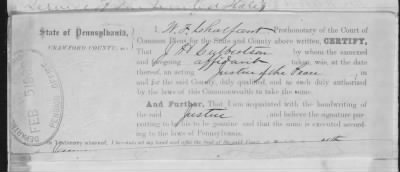 State of Pennsylvania,
CRAWFORD COUNTY, ss:
I, W. F. Chalfant Prothonotary of the Court of
Common Pleas for the State and County above written, CERTIFY,
That J H Culbertson by whom the annexed
and foregoing affidavit taken, was, at the date
thereof, an acting Justice of the Peace, in
and for the said County, duly qualified, and as such duly authorised
by the laws of this Commonwealth to take the same.
And Further, That I am acquainted with the handwriting of
the said Justice and believe the signature pur-
porting to be his to be genuine and that the same is executed according
to the laws of Pennsylvania.
In Testimony whereof, I hereunto set my hand and affix the seal of the said Court,
FEB